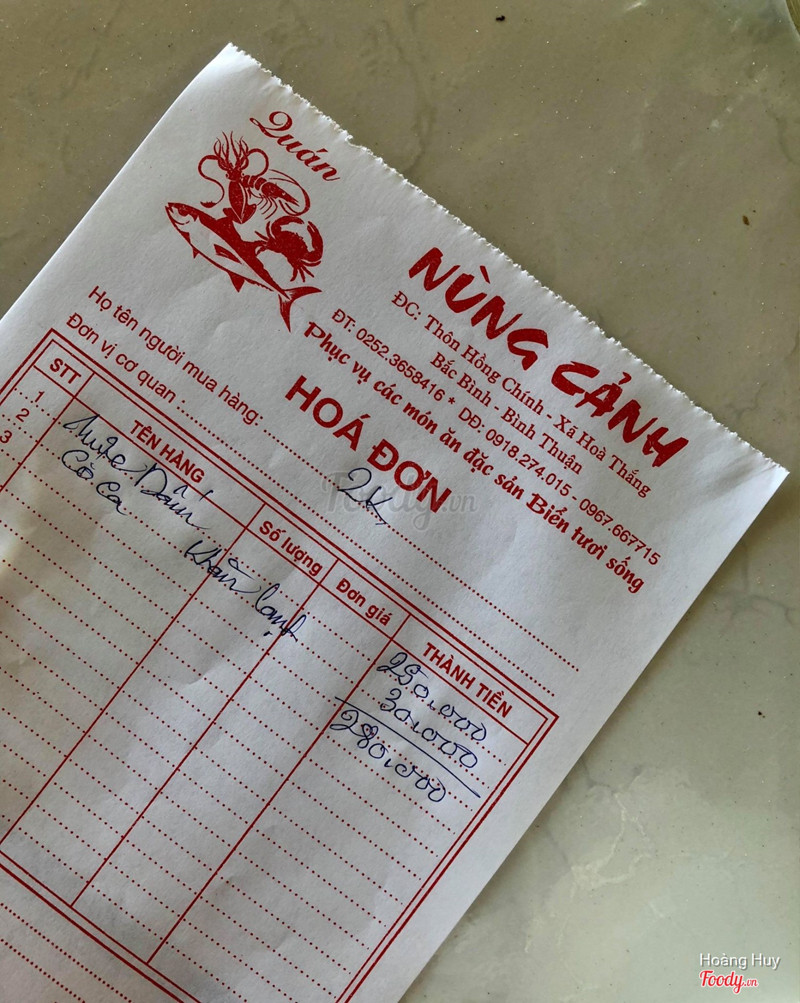 Quán
NÙNG CẢNH
ĐC: Thôn Hồng Chính - Xã Hoà Thắng
Bắc Bình - Bình Thuận
ĐT: 0252.3658416 * DĐ: 0918.274.015 - 0967.667715
Phục vụ các món ăn đặc sản Biển tươi sống
HOÁ ĐƠN
Họ tên người mua hàng:
Đơn vị cơ quan
STT TÊN HÀNG Số lượng Đơn giá THÀNH TIỀN
1 Mực 250.000
2 Cô ca Khăn lạnh 30.000
3 280.000
Foody.vn
Hoàng Huy
Foody.vn